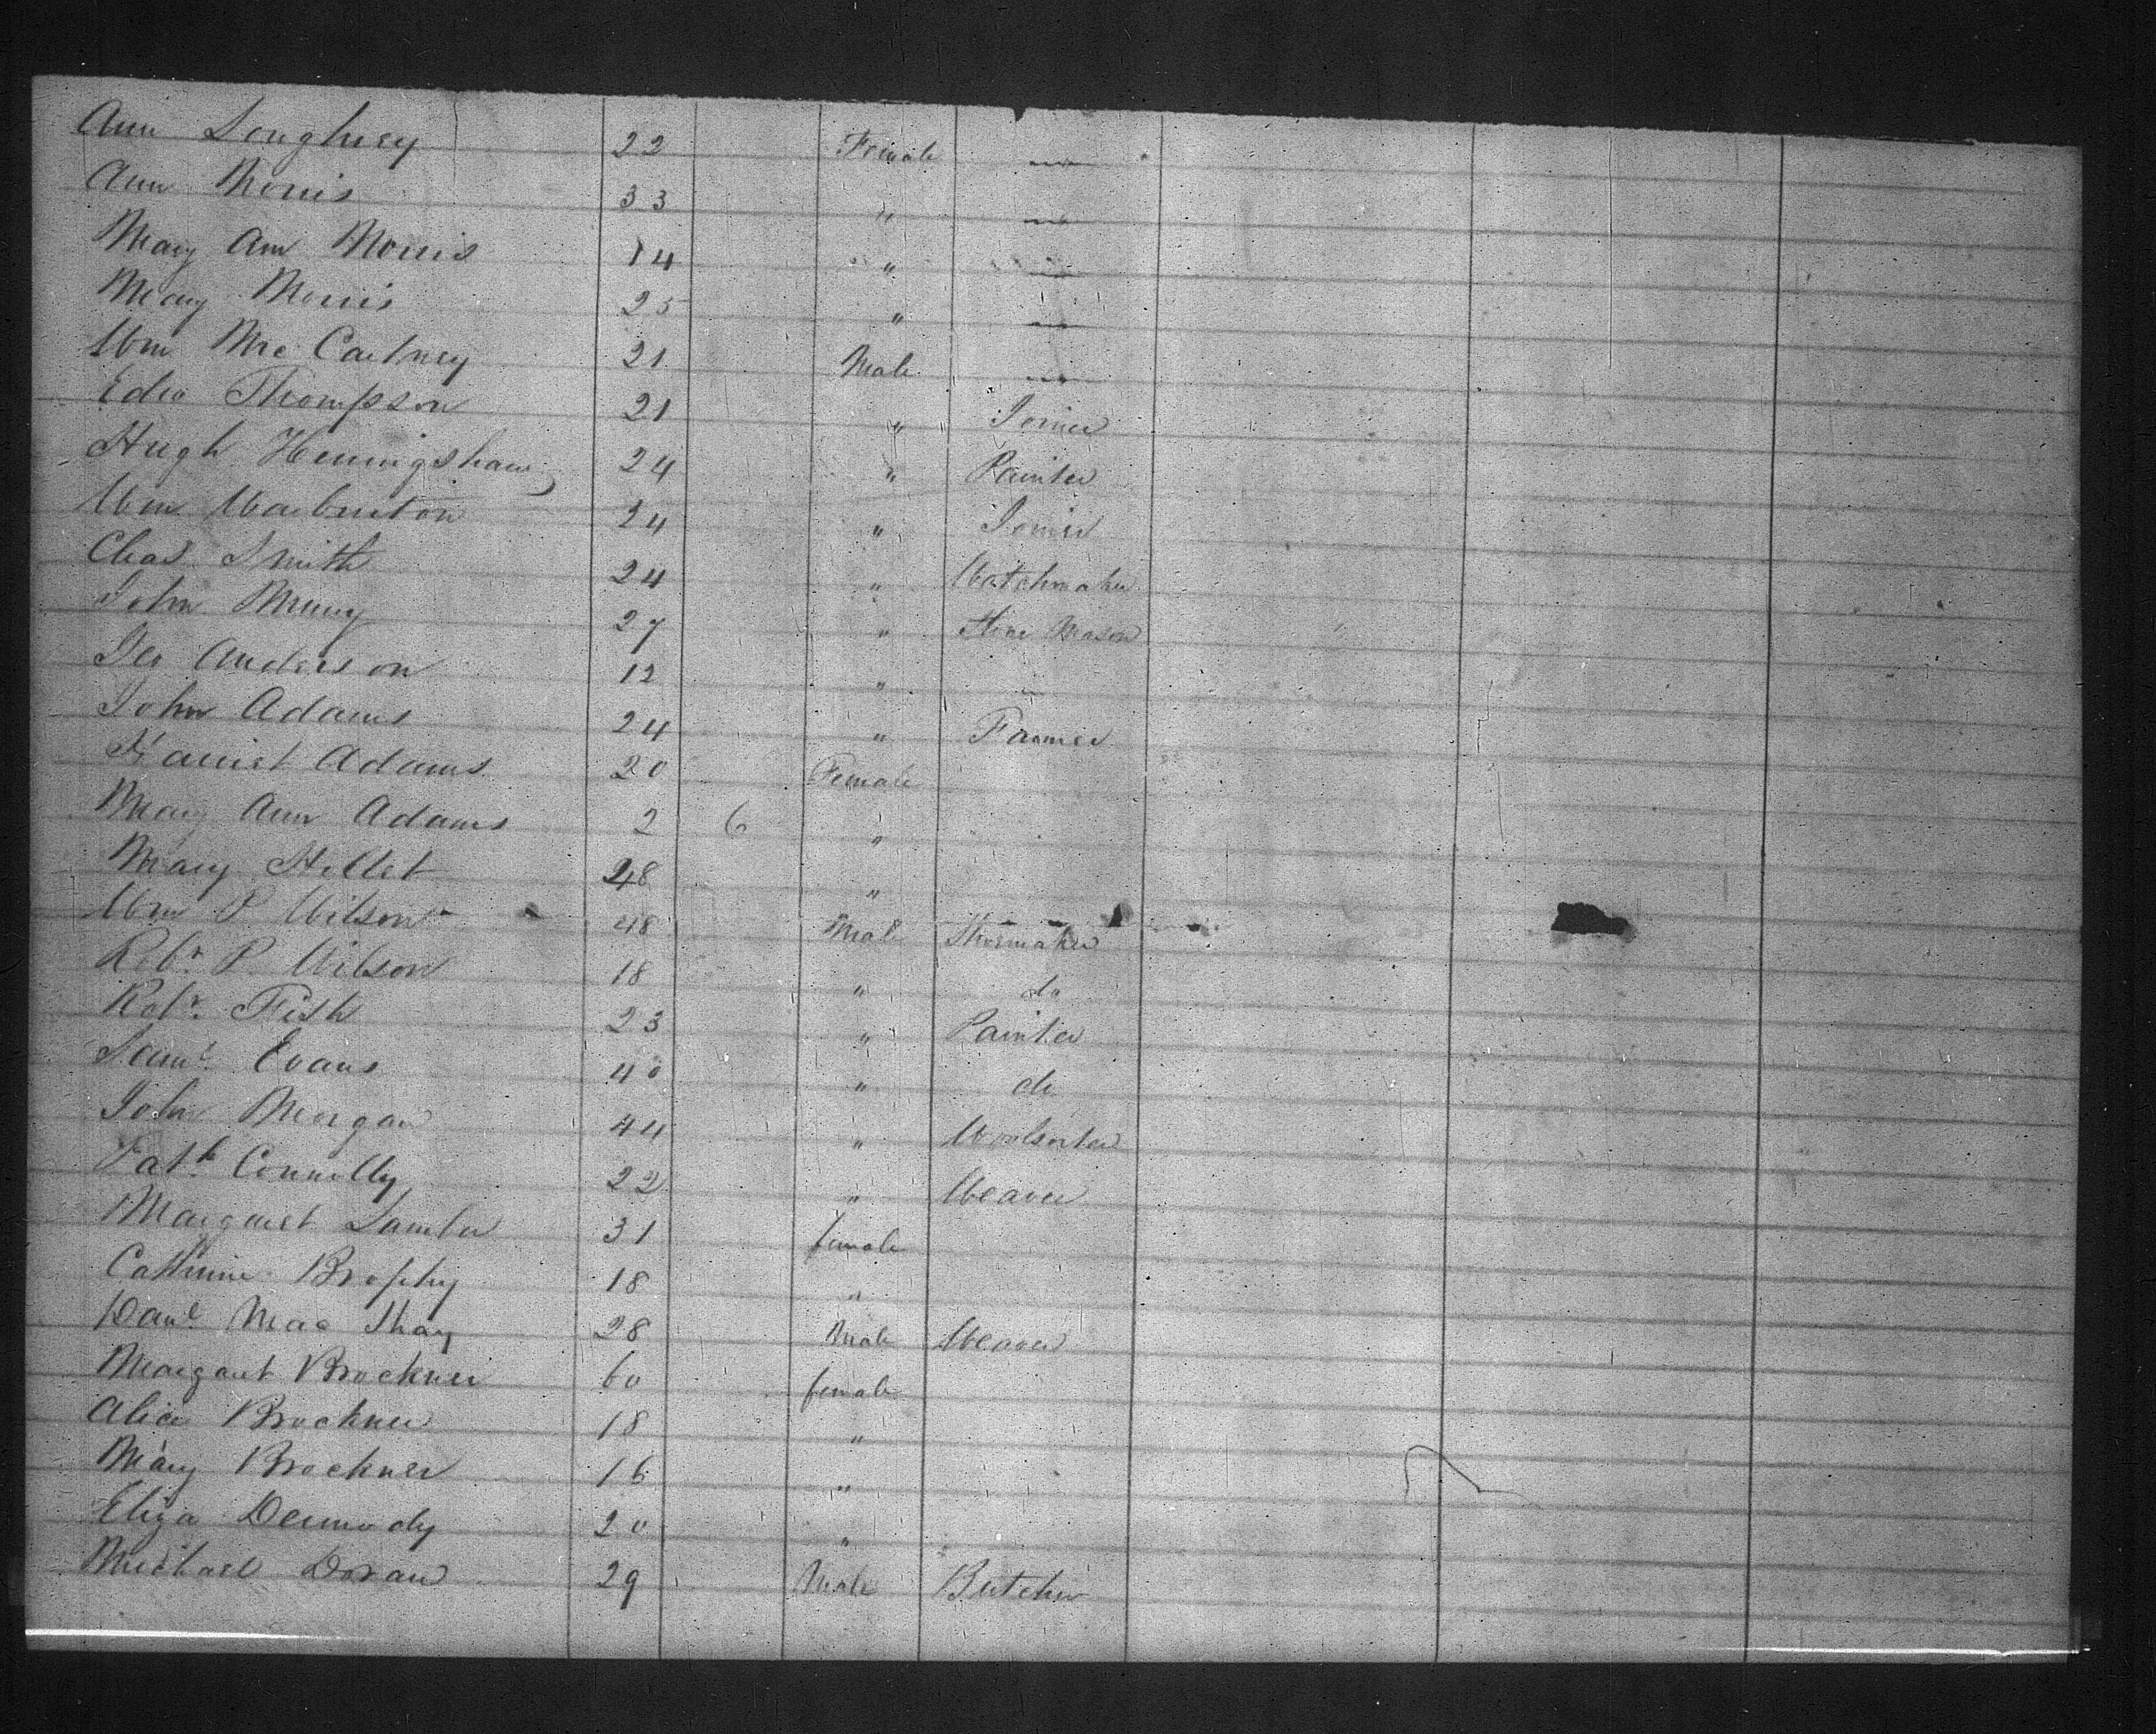 Ann Loughrey 22 Female
Ann Morris 33 "
Mary Ann Morris 14 "
Mary Morris 25 "
Wm McCartney 21 Male
Edw Thompson 21 " Joiner
Hugh Henningshaw 24 " Painter
Wm Warburton 24 " Joiner
Chas Smith 24 " Watchmaker
John 27 " Stone Mason
Geo Anderson 12 "
John Adams 24 " Farmer
Harriet Adams 20 Female
Mary Ann Adams 2 6 "
Mary Hellet "
Wm P Wilson 48 Male Shoemaker
Robt P. Wilson 18 " do
Robt Fish 23 " Painter
Saml Evans 40 " do
John Morgan 44 " Woolsorter
Patk Connolly 22 " Weaver
Margaret 31 female
Catherine Brophy 18 "
Danl Mac Shay 28 Male Weaver
Margaret Brockner 60 female
Alice Brockner 18 "
Mary Brockner 16 "
Eliza Dermody 20 "
Michael Doran 29 Male Butcher